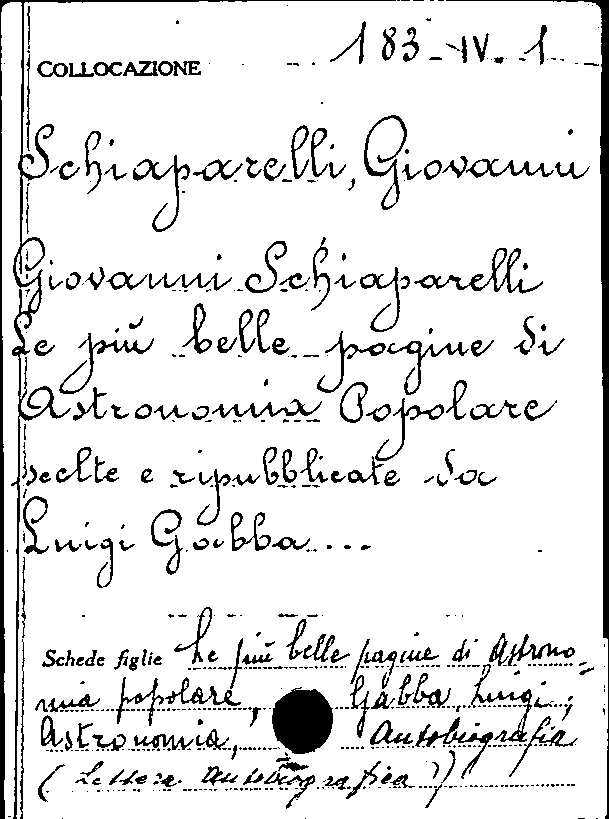 COLLOCAZIONE 183-IV. 1
Schiaparelli, Giovanni
Giovanni Schiaparelli
Le più belle pagine di
Astronomia Popolare
scelte e ripubblicate da
Luigi Gabba...
Schede figlie Le più belle pagine di Astrono-
mia popolare, Gabba, Luigi;
Astronomia, Autobiografia
(Lettera Autobiografica)